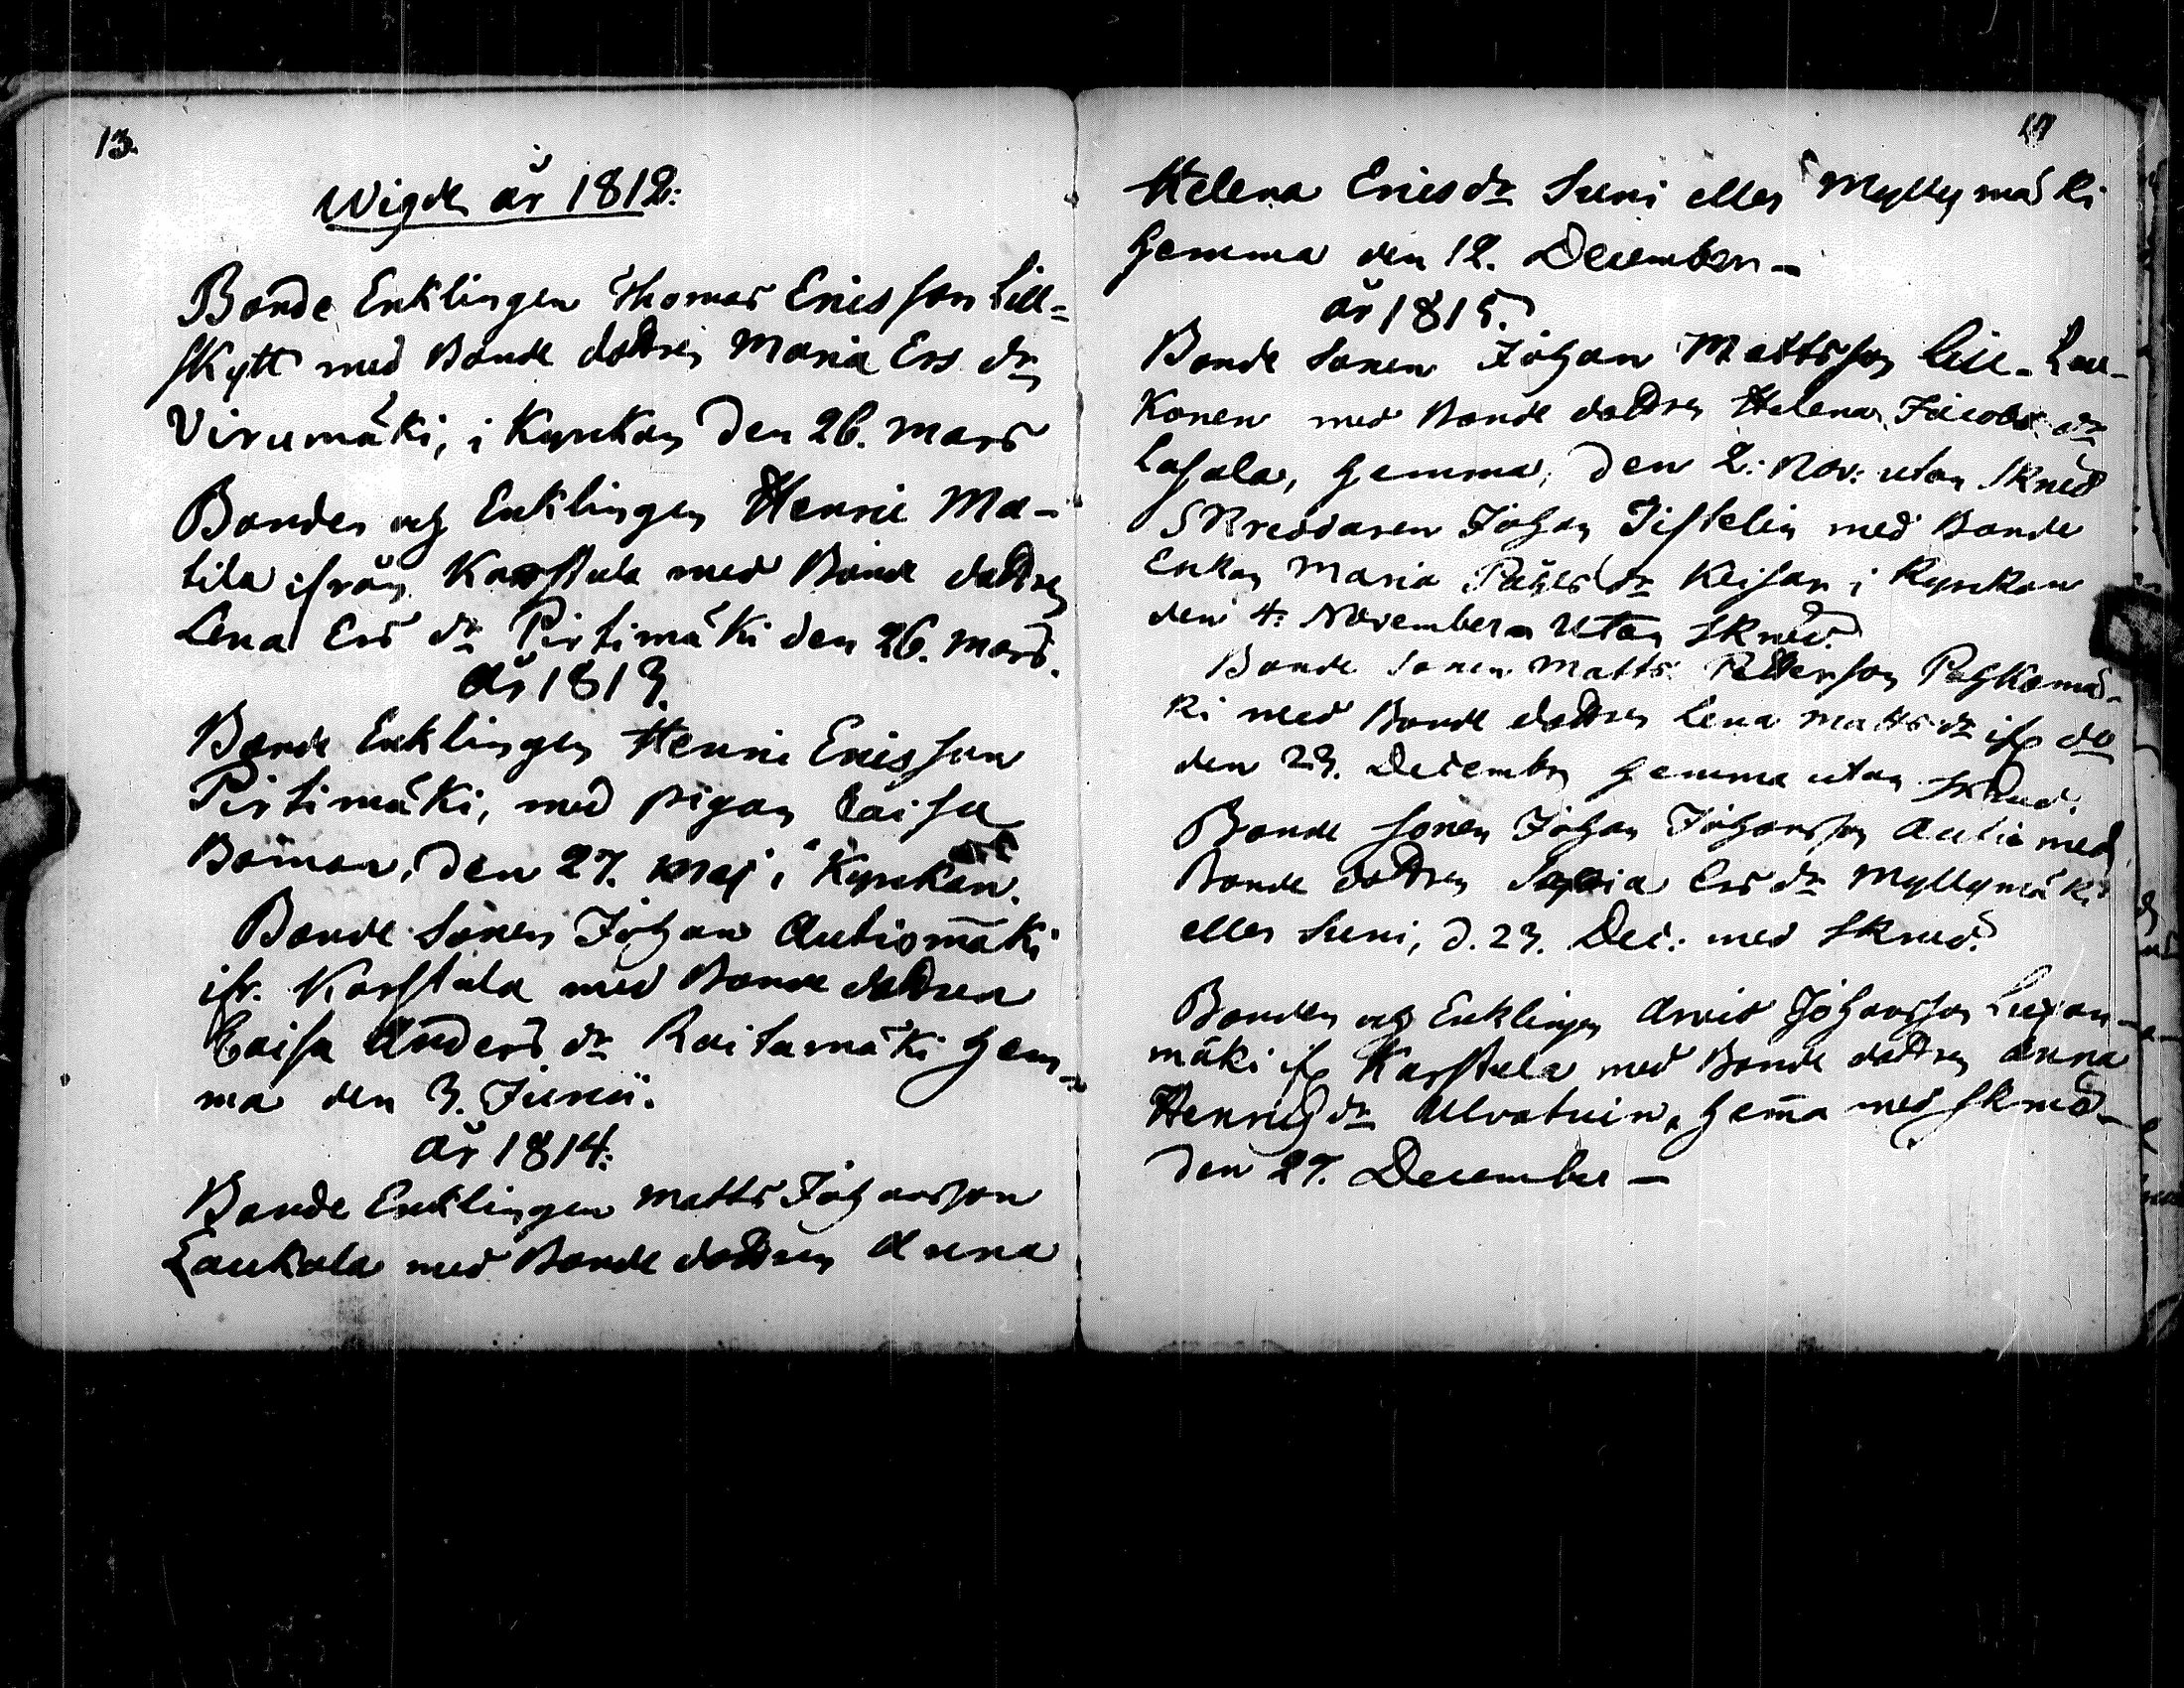 13.
Wigde år 1812:
Bonde Enklingen Thomas Ericsson Lill=
skytt med Bonde dottren Maria Ers dr
Virumäki, i Kyrckan den 26. Mars
Bonden och Enklingen Henric Ma-
tila ifrån Karstula med Bonde dottren
Lena Ers dr Pirtimäki den 26. Mars.
År 1813.
Bonde Enklingen Henric Ericsson
Pirtimäki, med pigan Caisa
Böman, den 27. Maj i Kyrckan.
Bonde Sonen Johan Autiomäki
ifr. Karstula med Bonde dottren
Caisa Anders dr Raitamäki hem-
ma den 3. Junii.
år 1814:
Bonde Enklingen Matts Johansson
Laukala med Bonde dottren Anna
Helena Erics dr Suni eller Myllymäki
hemma den 12. December -
år 1815.
Bonde Sonen Johan Mattsson Lill-Lau-
konen med Bonde dottren Helena Jacobs dr
Lasala, hemma, den 2. Nov: utan skrud
Skreddaren Johan Tistelin med Bonde
Enkan Maria Påhls dr Keisar i Kyrckan
den 4. November utan skrud.
Bonde Sonen Matts Pettersson Pohkamä-
ki med Bonde dottren Lena Matts dr ifr do
den 23. December hemma utan skrud
Bonde Sonen Johan Johansson Autio med
Bonde dottren Sophia Ers dr Myllymäki
eller Suni, d. 23. Dec: med skrud.
Bonden och Enklingen Arvid Johansson
mäki ifr Karstula med Bonde dottren Anna
Henrichs dr Ulvatuin, hema med skrud
den 27. December -